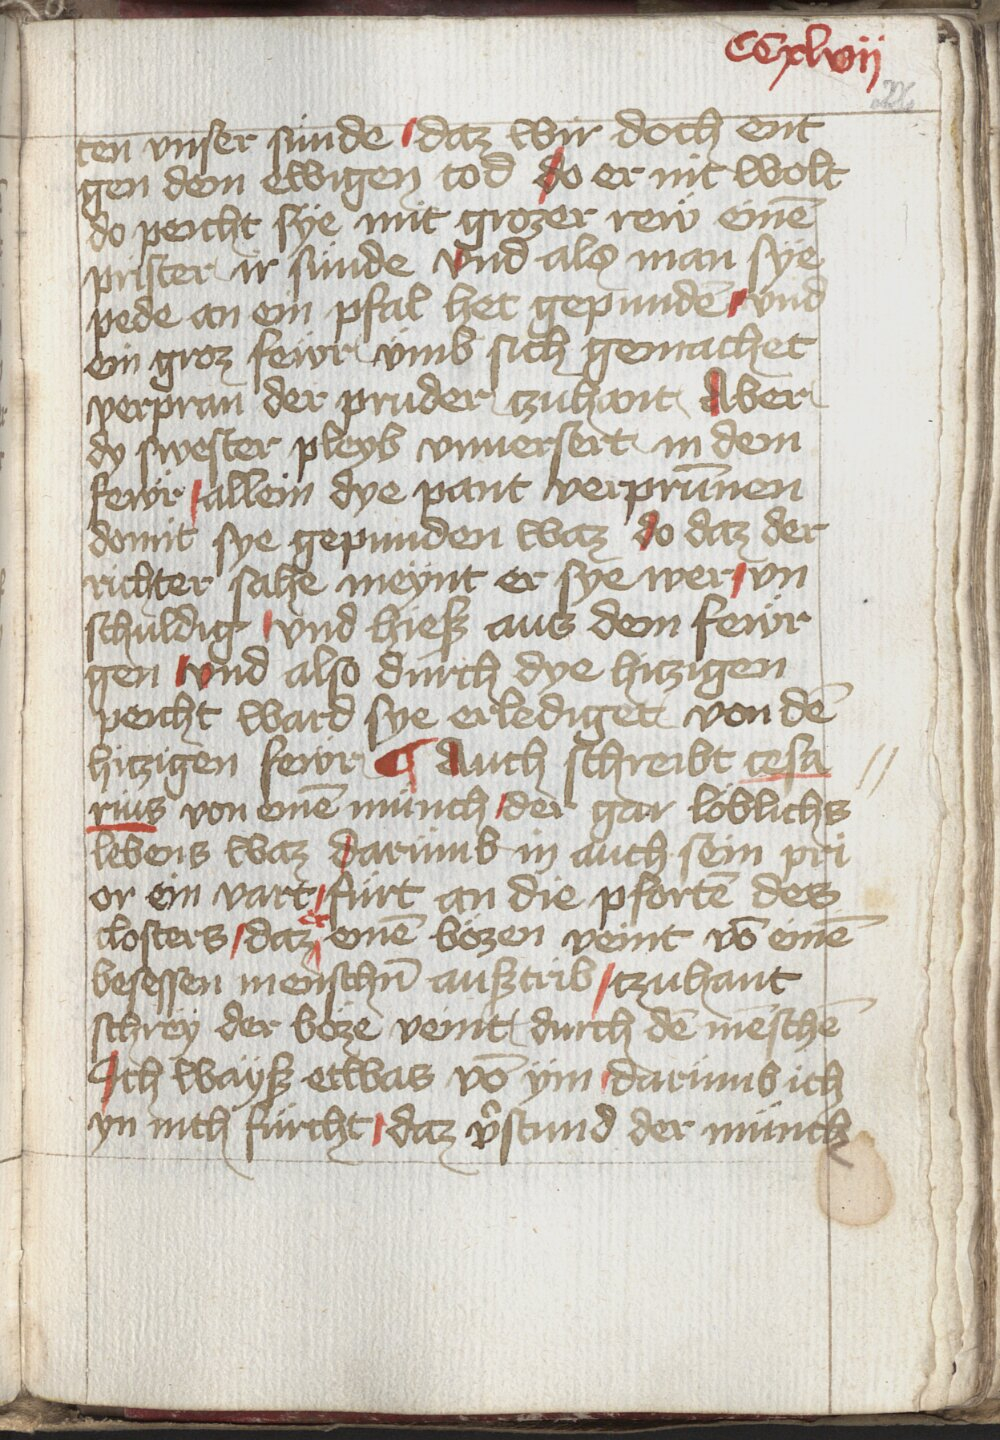 CCxlvij
ten vnser sünde / daz wir doch ent
gen dem ewigen tod do er nit wolt
do peicht sye mit grozer rew einē
prister ir sünde vnd als man sye
pede an ein pfal het gepundē / vnd
ein groz fewr vmb sich gemachet
verpran der pruder tzuhant Aber
dy swester pleyb vnuersert in dem
fewr / allein dye pant verprūnen
domit sye gepunden waz do daz der
richter sahe meynt er sye wer / vn
schuldig / vnd hieß aus dem fewr
gen / vnd also durch dye hitzigen
peicht ward sye erlediget von dē
hitzigen fewr ¶ Auch schreibt cesa
rius von einē münch / der gar löblichs
lebens waz darümb in auch sein pri
or ein vart / fürt an die pfortē des
closters / daz er einē bözen veint vō einē
besessen menschn̄ außtrib / tzuhant
schrey der böze veint durch dē mēschē
Ich wayß etwas vō ym / darümb ich
yn nith fürcht / daz v̂stund der münch